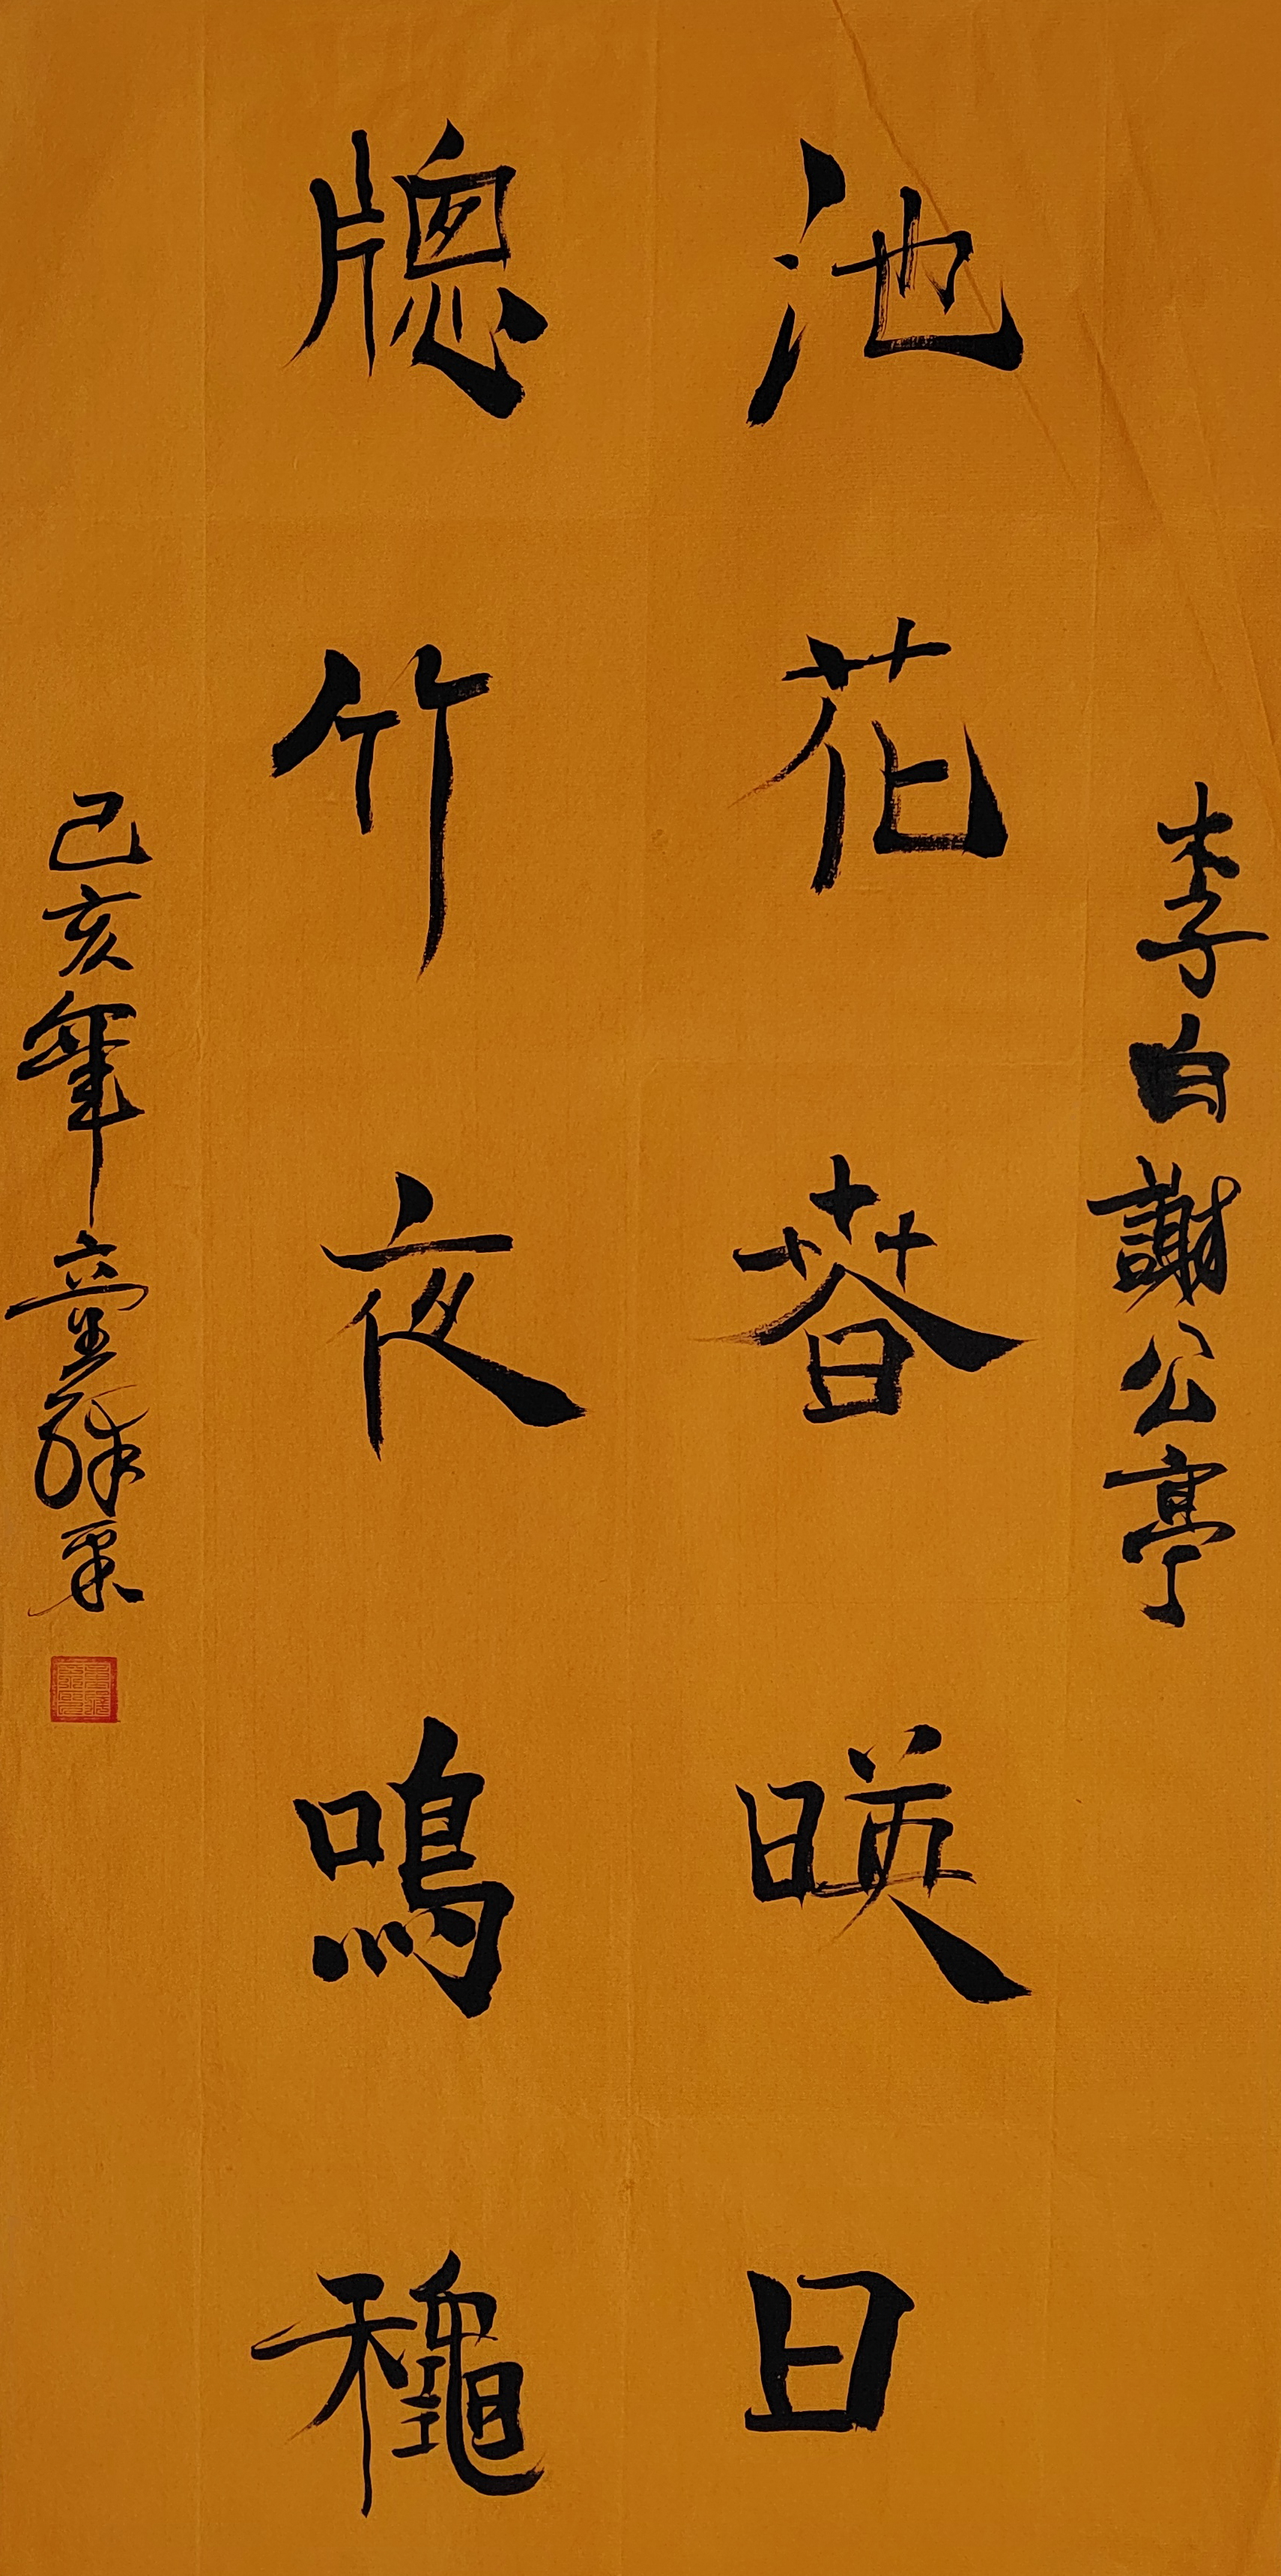 李白謝公亭
池花春暎日
牕竹夜鳴龝
己亥年